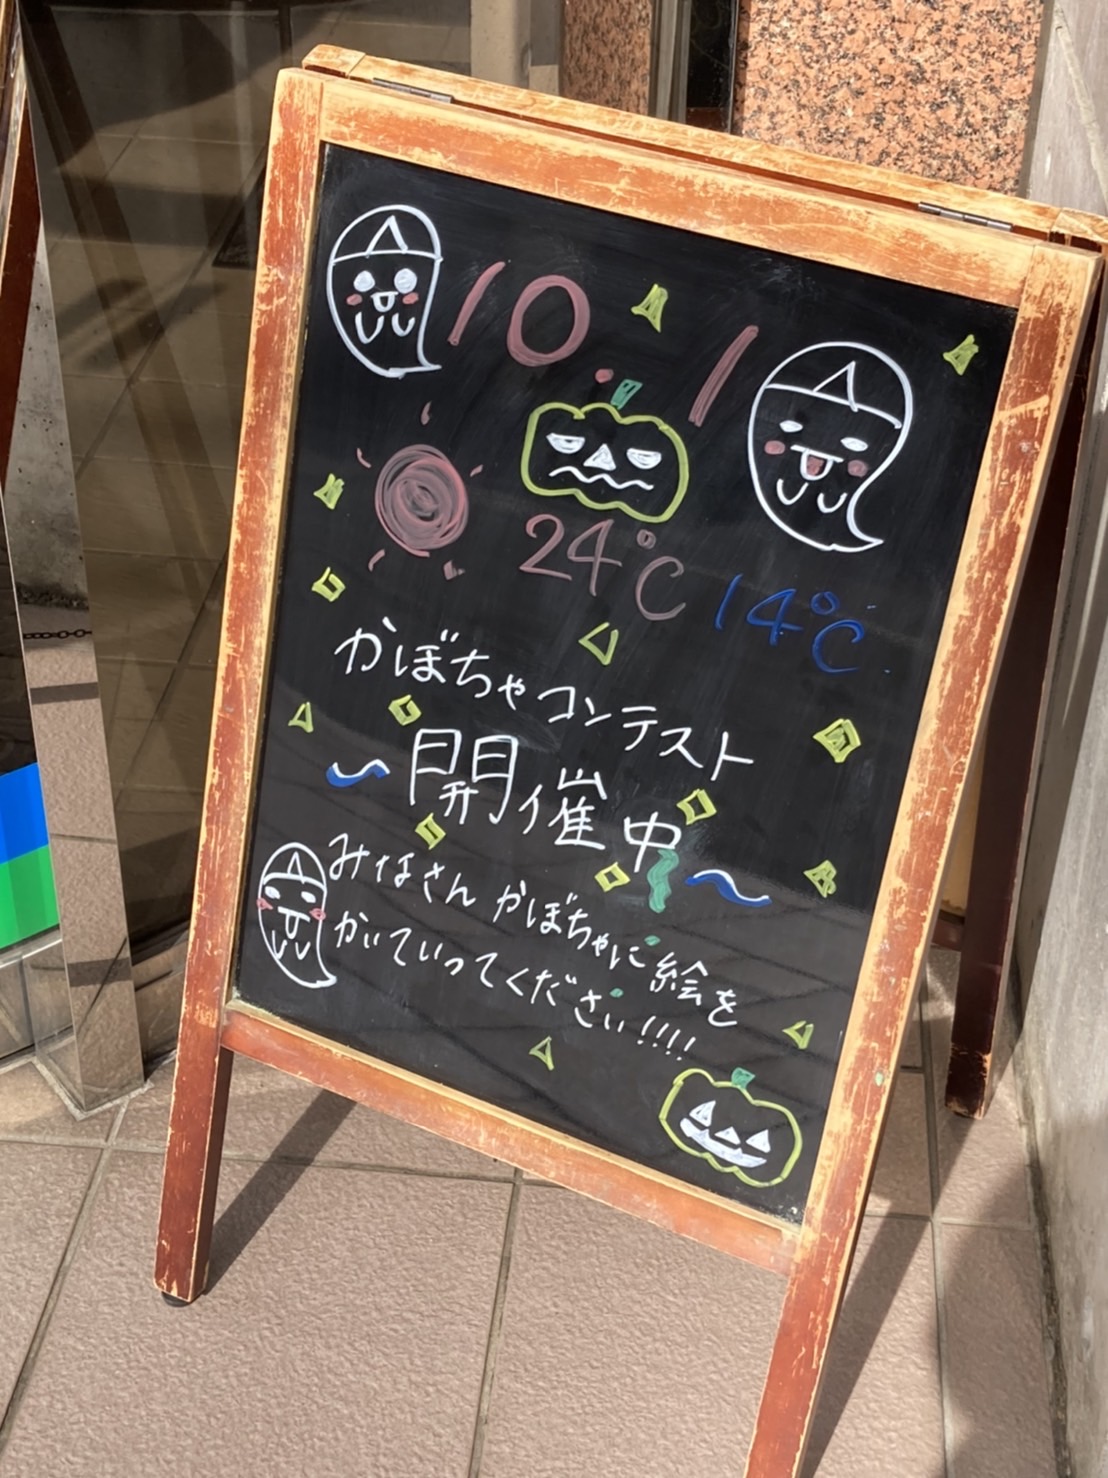 10.1
24℃ 14℃
かぼちゃコンテスト
~開催中~
みなさんかぼちゃに絵を
かいていってください!!!!